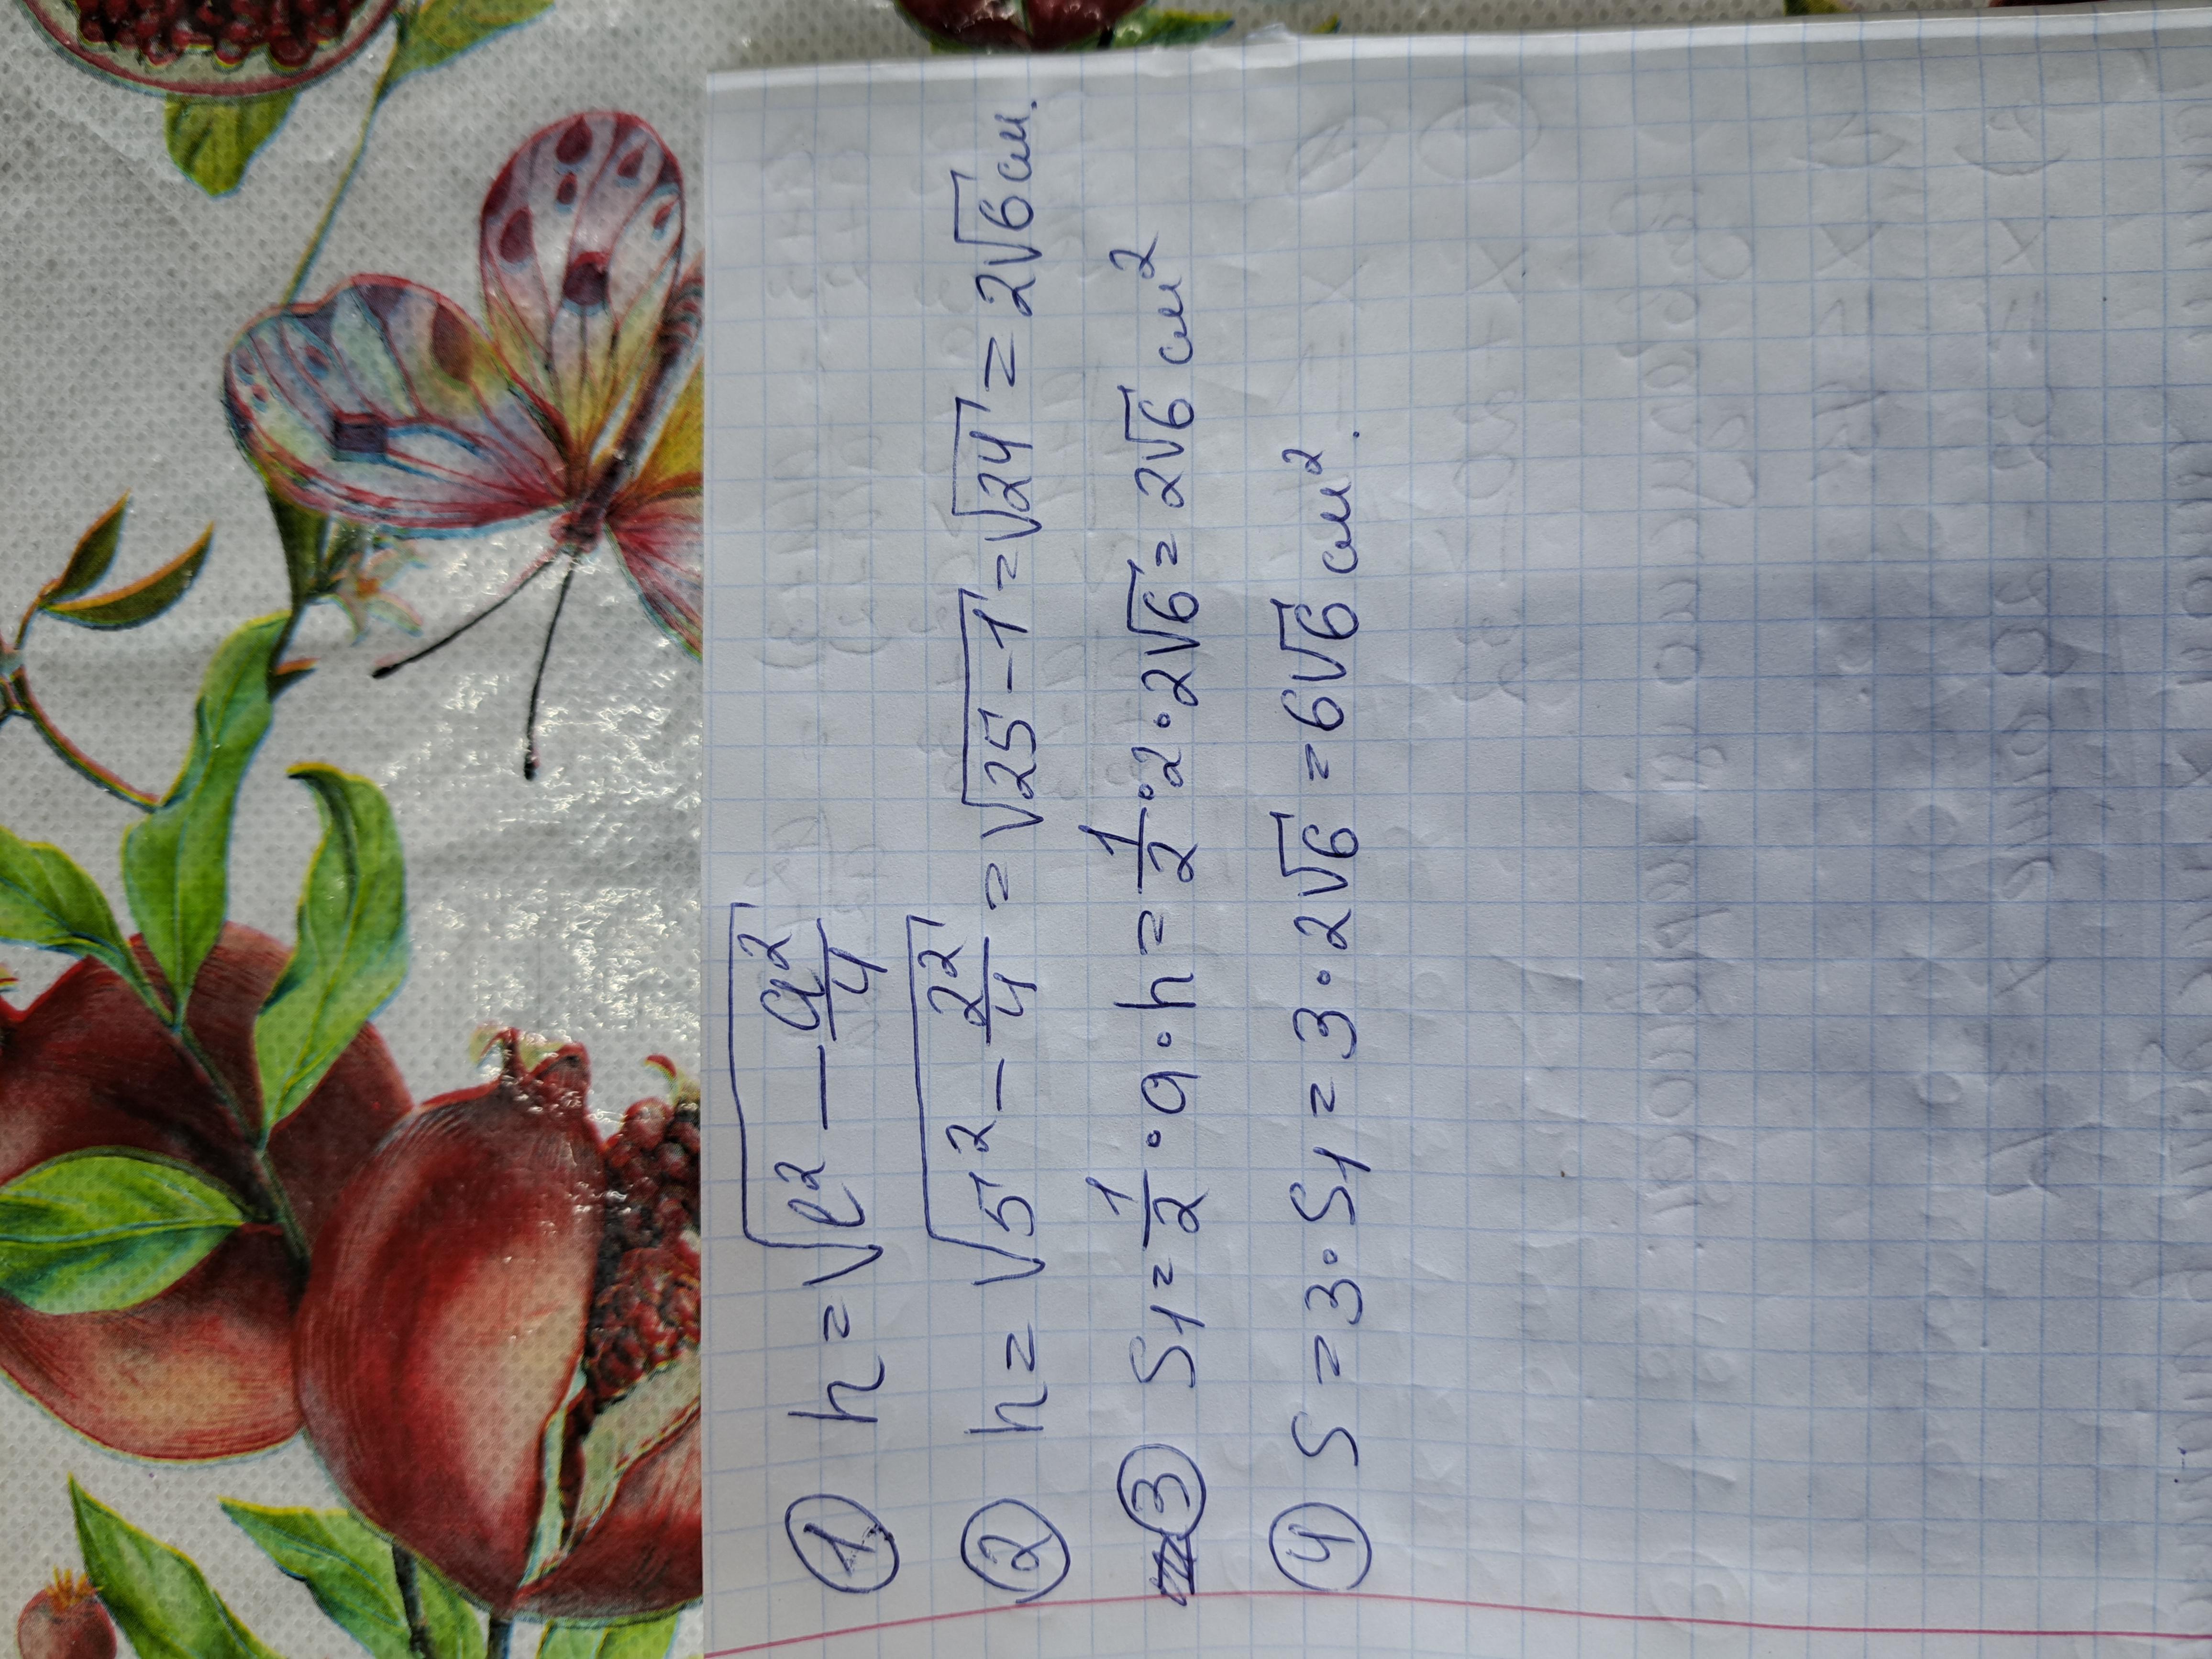 ① h = √(l² − a²/4)
② h = √(5² − 2²/4) = √(25 − 1) = √24 = 2√6 см.
③ S₁ = 1/2 · a · h = 1/2 · 2 · 2√6 = 2√6 см²
④ S = 3 · S₁ = 3 · 2√6 = 6√6 см².